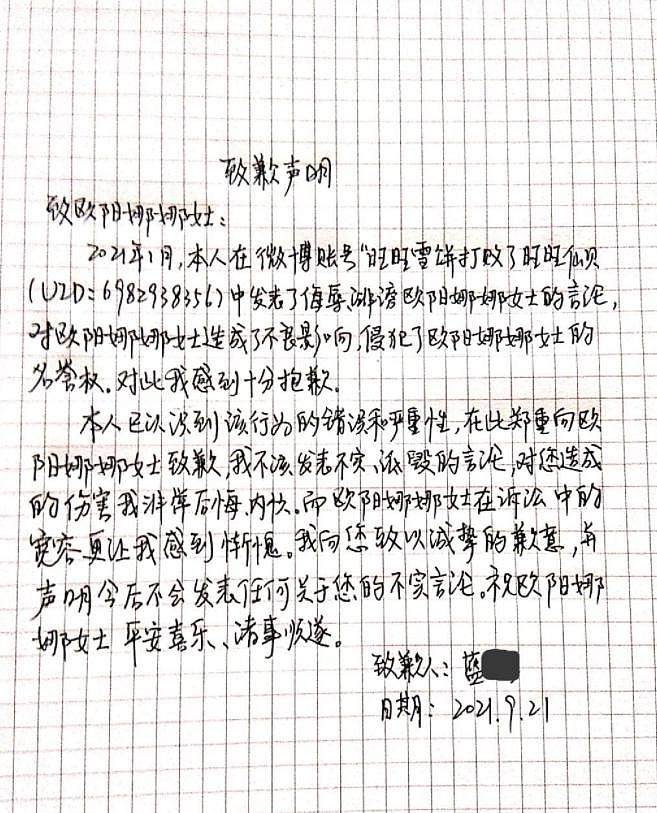 致歉声明
致欧阳娜娜女士：
2021年1月，本人在微博账号“旺旺雪饼打败了旺旺仙贝
(UID：6982938356)中发表了侮辱、诽谤欧阳娜娜女士的言论，
对欧阳娜娜女士造成了不良影响，侵犯了欧阳娜娜女士的
名誉权。对此我感到十分抱歉。
本人已认识到该行为的错误和严重性，在此郑重向欧
阳娜娜女士致歉，我不该发表不实、诋毁的言论，对您造成
的伤害我非常后悔、内疚。而欧阳娜娜女士在诉讼中的
宽容更让我感到惭愧。我向您致以诚挚的歉意，并
声明今后不会发表任何关于您的不实言论。祝欧阳娜
娜女士平安喜乐、诸事顺遂。
致歉人：蓝
日期：2021.9.21